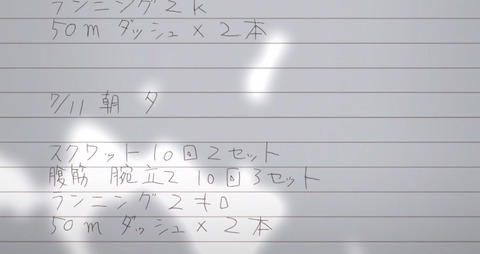 ランニング 2k
50m ダッシュ × 2本
7/11 朝 夕
スクワット 10回 2セット
腹筋 腕立て 10回 3セット
ランニング 2キロ
50m ダッシュ × 2本